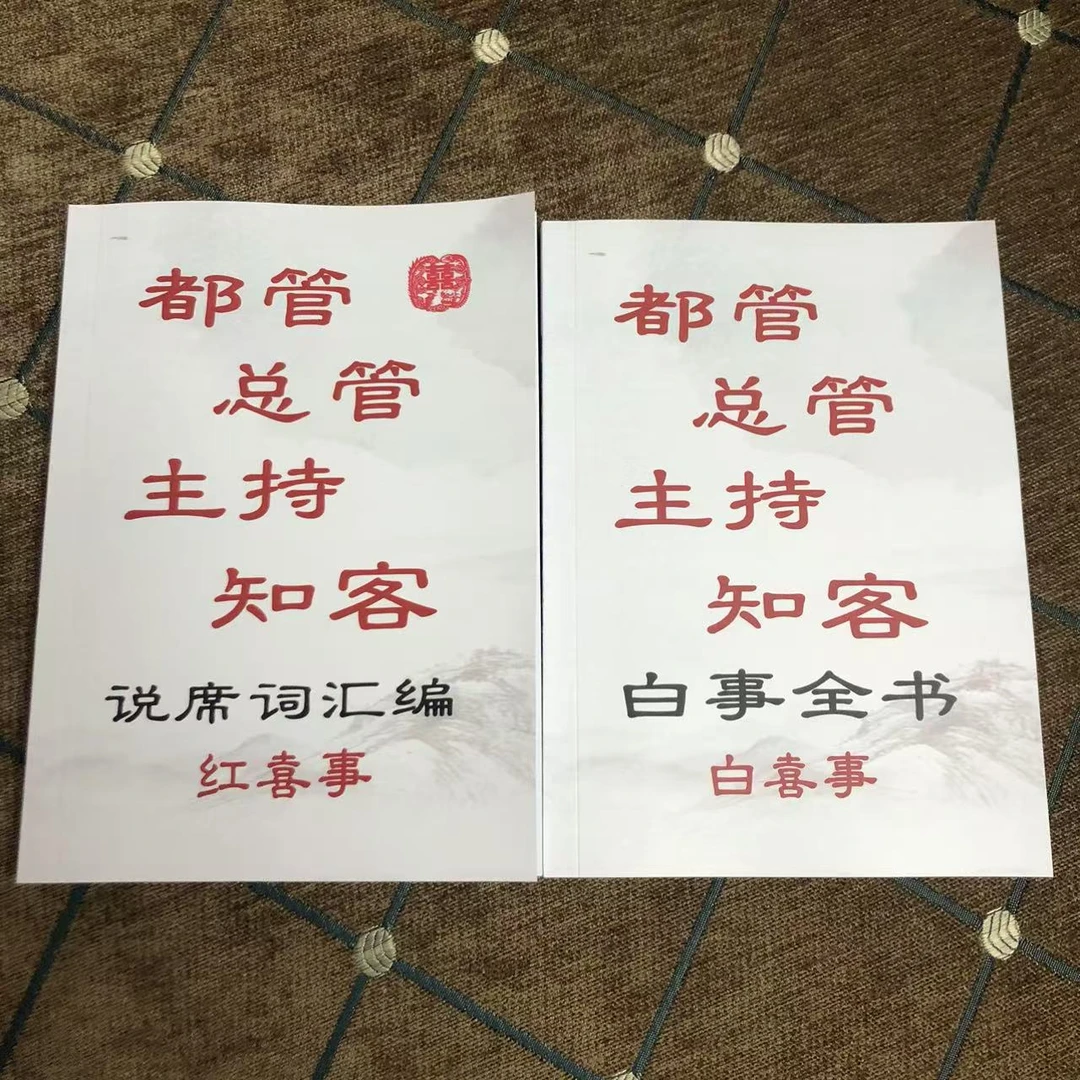 都管
总管
主持
知客
说席词汇编
红喜事
都管
总管
主持
知客
白事全书
白喜事